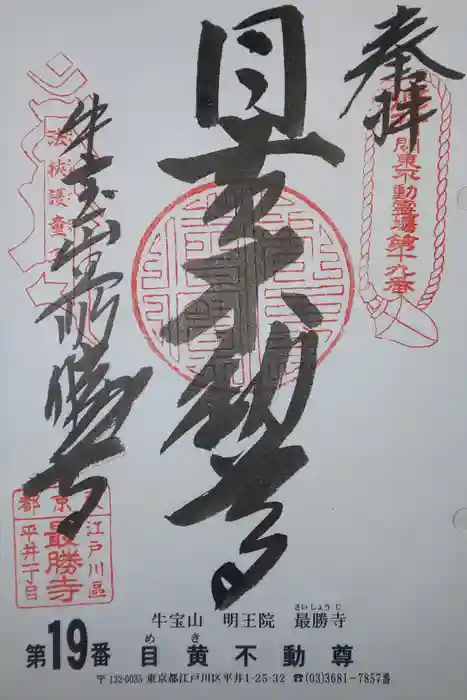 奉拝
関東不動霊場第十九番
目黄不動尊
牛宝山最勝寺
法挟護童子
東京都江戸川區平井一丁目
最勝寺
牛宝山 明王院 最勝寺
さいしょうじ
めき
第19番 目黄不動尊
〒132-0035 東京都江戸川区平井1-25-32 ☎(03)3681-7857番